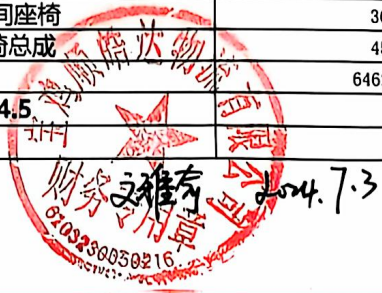 间座椅 36
椅总成 45
646
4.5
宝鸡顺皓达物流有限公司
财务专用章
6103230030216
2024.7.3